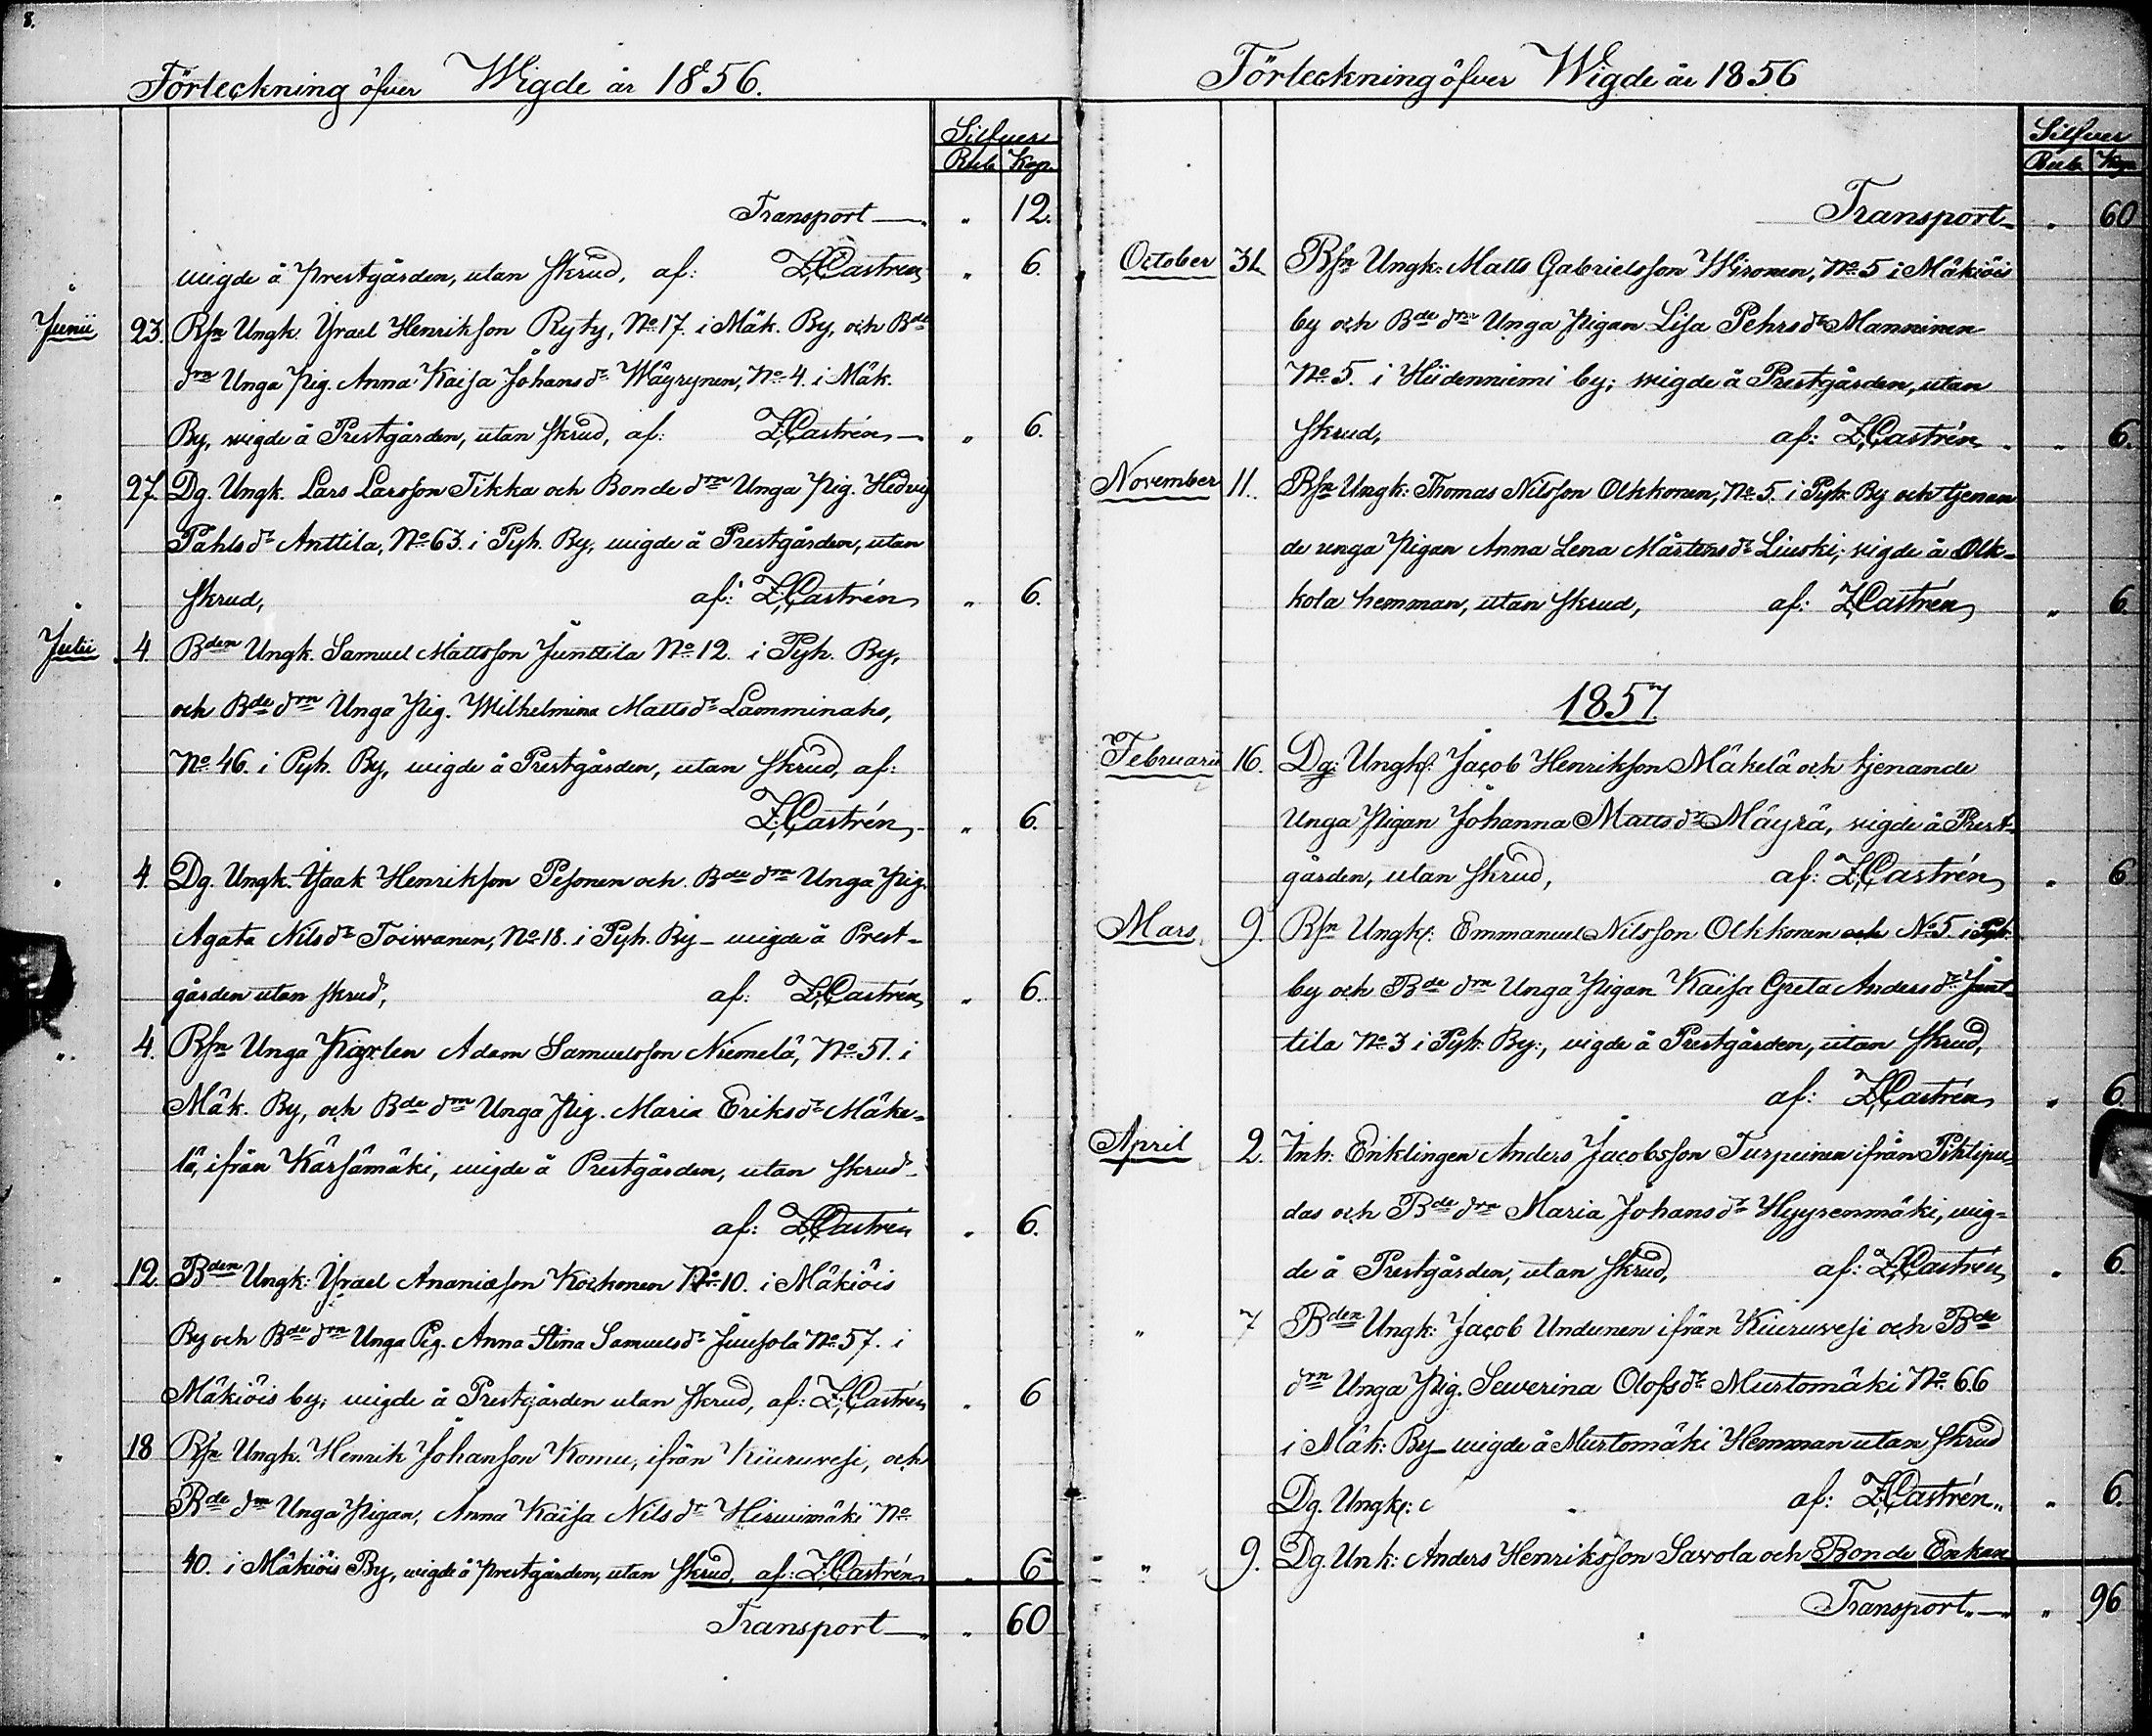 8.
Förteckning öfver Wigde år 1856.
Silfver
Rub. Kop.
Transport —. " 12.
wigde å prestgården, utan skrud, af: Z.Castrén " 6.
Junii 23. Rfn Ungk. Ysrael Henriksson Ryty, No 17. i Mäk. By, och Bde
drn Unga pig. Anna Kaisa Johansdr Wäyrynen, No 4. i Mäk.
By, wigde å Prestgården, utan skrud, af: Z.Castrén — " 6.
" 27. Dg. Ungk. Lars Larsson Tikka och Bonde drn Unga Pig. Hedvig
Påhlsdr Anttila, No 63. i Pyh. By, wigde å Prestgården, utan
skrud, af: Z.Castrén " 6.
Julii 4. Bden Ungk. Samuel Mattsson Junttila No 12. i Pyh. By,
och Bde drn Unga Pig. Wilhelmina Mattsdr Lamminaho,
No 46. i Pyh. By, wigde å Prestgården, utan skrud, af:
Z.Castrén " 6.
" 4. Dg. Ungk. Isaak Henriksson Pesonen och Bde drn Unga Pig.
Agata Nilsdr Toiwanen, No 18. i Pyh. By — wigde å Prest-
gården utan skrud, af: Z.Castrén " 6.
" 4. Rfn Unga Karlen Adam Samuelsson Niemelä, No 51. i
Mäk. By, och Bde drn Unga Pig. Maria Eriksdr Mäke-
lä, ifrån Kärsämäki, wigde å Prestgården, utan skrud —
af: Z.Castrén " 6.
" 12. Bden Ungk: Ysrael Ananiasson Korkonen No 10. i Mäkiöis
By och Bde drn Unga Pig. Anna Stina Samuelsdr Juusola No 57. i
Mäkiöis by, wigde å Prestgården utan skrud, af: Z.Castrén " 6
" 18 Rfn Ungk. Henrik Johansson Komu, ifrån Kiuruvesi, och
Bde drn Unga Pigan, Anna Kaisa Nilsdr Hirvimäki No
40. i Mäkiöis By, wigde å prestgården, utan skrud, af: Z.Castrén " 6
Transport —. " 60
Förteckning öfver Wigde år 1856
Silfver
Rub. Kop.
Transport — " 60
October 31. Rfn Ungk: Matts Gabrielsson Wironen, No 5 i Mäkiöis
by och Bde drn Unga Pigan Lisa Pehrsdr Manninen
No 5. i Hiidenniemi by; wigde å Prestgården, utan
skrud, af: Z.Castrén " 6.
November 11. Rfn Ungk: Thomas Nilsson Olkkonen, No 5. i Pyh. By och tjenan
de unga Pigan Anna Lena Mårtensdr Liuski; vigde å Olk-
kola hemman, utan skrud, af: Z.Castrén " 6.
1857.
Februarii 16. Dg: Ungk: Jacob Henriksson Mäkelä och tjenande
Unga Pigan Johanna Mattsdr Mäyrä, vigde å Prest-
gården, utan skrud, af: Z.Castrén " 6
Mars 9. Rfn Ungk: Emmanuel Nilsson Olkkonen och No 5. i Pyh.
by och Bde drn Unga Pigan Kaisa Greta Andersdr Junt-
tila No 3 i Pyh: By:, vigde å Prestgården, utan skrud,
af: Z.Castrén " 6.
April 2. Inh: Enklingen Anders Jacobsson Turpeinen ifrån Pihtipu-
das och Bde drn Maria Johansdr Hyyrenmäki, wig-
de å Prestgården, utan skrud, af: Z.Castrén " 6.
" 7 Bden Ungk: Jacob Undunen ifrån Kiuruvesi och Bde
drn Unga Pig. Severina Olofsdr Murtomäki No 66
i Mäk: By — wigde å Murtomäki Hemman utan skrud
Dg. Ungk: af: Z.Castrén " 6.
" 9. Dg. Unk: Anders Henriksson Savola och Bonde Enkan
Transport. — " 96